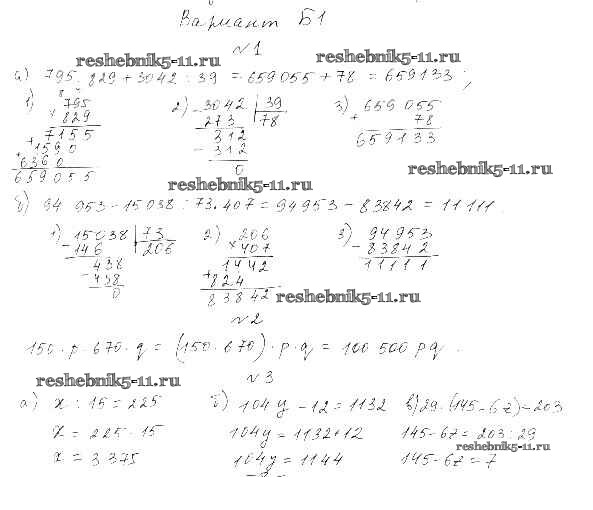 Вариант Б1
№1
reshebnik5-11.ru
reshebnik5-11.ru
а) 795 · 829 + 3042 : 39 = 659055 + 78 = 659133;
1) 795
× 829
7155
+ 1590
+ 6360
659055
2) 3042 | 39
- 273 | 78
312
- 312
0
3) 659055
+ 78
659133
reshebnik5-11.ru
reshebnik5-11.ru
б) 94 953 - 15038 : 73 · 407 = 94953 - 83842 = 11111.
1) 15038 | 73
- 146 | 206
438
- 438
0
2) 206
× 407
1442
+ 824
83842
3) 94953
- 83842
11111
reshebnik5-11.ru
№2
150 · p · 670 · q = (150 · 670) · p · q = 100 500 pq.
reshebnik5-11.ru
№3
а) x : 15 = 225
x = 225 · 15
x = 3375
б) 104y - 12 = 1132
104y = 1132 + 12
104y = 1144
в) 29 · (145 - 6z) = 203
145 - 6z = 203 : 29
reshebnik5-11.ru
145 - 6z = 7